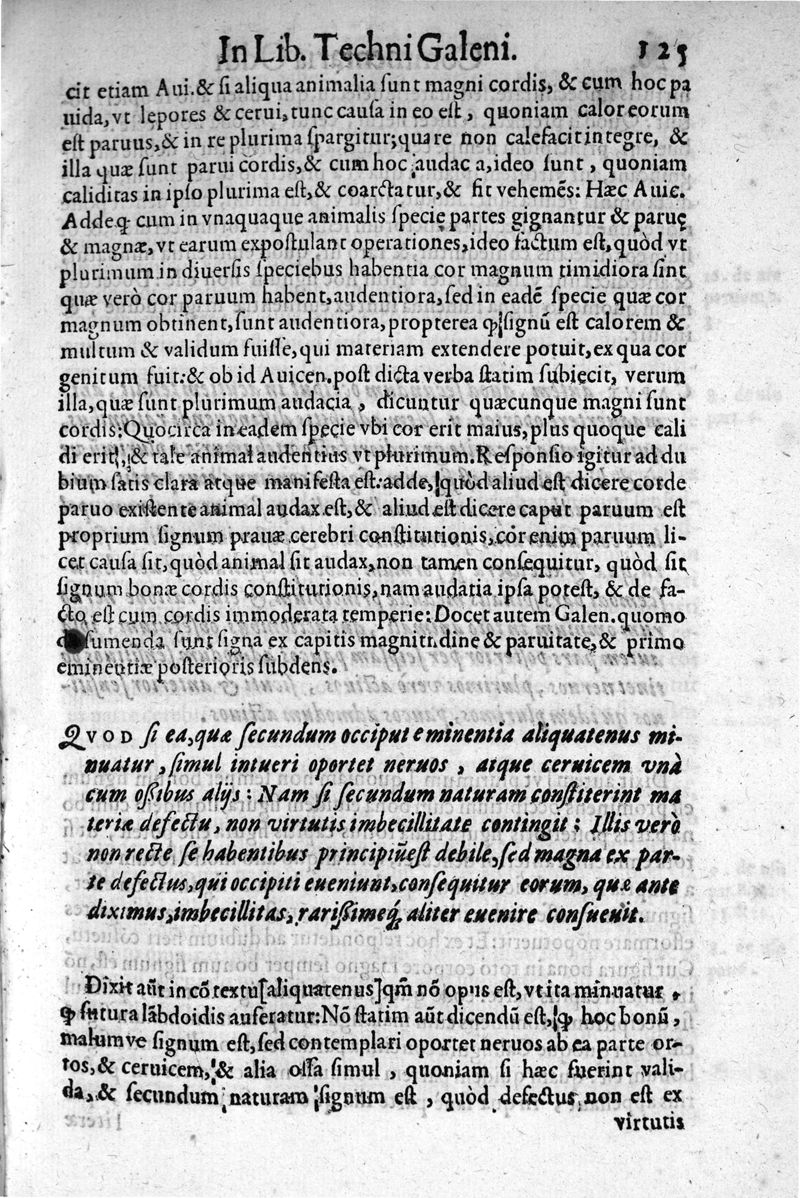 In Lib. Techni Galeni. 125
cit etiam Aui. & si aliqua animalia sunt magni cordis, & cum hoc pa
uida, vt lepores & cerui, tunc causa in eo est, quoniam calor eorum
est paruus, & in re plurima spargitur; quare non calefacit integre, &
illa quæ sunt parui cordis, & cum hoc audac a, ideo sunt, quoniam
caliditas in ipso plurima est, & coarctatur, & fit vehemēs: Hæc Auic.
Addeq́ cum in vnaquaque animalis specie partes gignantur & paruę
& magnæ, vt earum expostulant operationes, ideo factum est, quòd vt
plurimum in diuersis speciebus habentia cor magnum timidiora sint
quæ verò cor paruum habent, audentiora, sed in eadē specie quæ cor
magnum obtinent, sunt audentiora, propterea ꝙ signū est calorem &
multum & validum fuisse, qui materiam extendere potuit, ex qua cor
genitum fuit: & ob id Auicen. post dicta verba statim subiecit, verum
illa, quæ sunt plurimum audacia, dicuntur quæcunque magni sunt
cordis: Quocirca in eadem specie vbi cor erit maius, plus quoque cali
di erit, & tale animal audentius vt plurimum. Responsio igitur ad du
bium satis clara atque manifesta est: adde, quòd aliud est dicere corde
paruo existente animal audax est, & aliud est dicere caput paruum est
proprium signum prauæ cerebri constitutionis, cor enim paruum li-
cet causa sit, quòd animal sit audax, non tamen consequitur, quòd sit
signum bonæ cordis constitutionis, nam audatia ipsa potest, & de fa-
cto est cum cordis immoderata temperie: Docet autem Galen. quomo
sumenda sunt signa ex capitis magnitudine & paruitate, & primo
eminentiæ posterioris subdens.
QVOD si ea, quæ secundum occiput eminentia aliquatenus mi-
nuatur, simul intueri oportet neruos, atque ceruicem vnà
cum ossibus alijs: Nam si secundum naturam constiterint ma
teriæ defectu, non virtutis imbecillitate contingit; Illis verò
non recte se habentibus principiū est debile, sed magna ex par-
te defectus, qui occipiti eueniunt, consequitur eorum, quæ ante
diximus, imbecillitas, rarissimeq́ aliter euenire consueuit.
Dixit aūt in cō textu [aliquatenus] qm̄ nō opus est, vt ita minuatur,
ꝙ sutura lābdoidis auferatur: Nō statim aūt dicendū est, ꝙ hoc bonū,
malumve signum est, sed contemplari oportet neruos ab ea parte or-
tos, & ceruicem, & alia ossa simul, quoniam si hæc fuerint vali-
da, & secundum naturam signum est, quòd defectus non est ex
virtutis